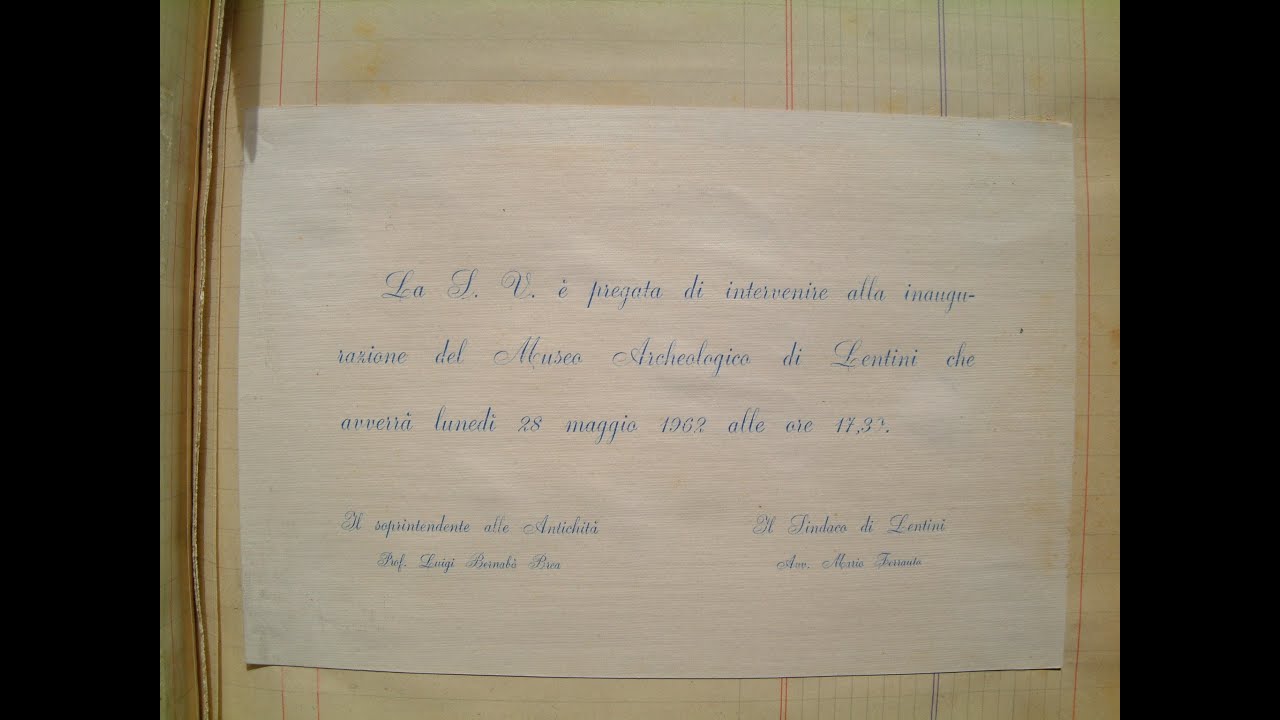 La S. V. è pregata di intervenire alla inaugu-
razione del Museo Archeologico di Lentini che
avverrà lunedì 28 maggio 1962 alle ore 17,30.
Il soprintendente alle Antichità
Prof. Luigi Bernabò Brea
Il Sindaco di Lentini
Avv. Mario Ferrauto